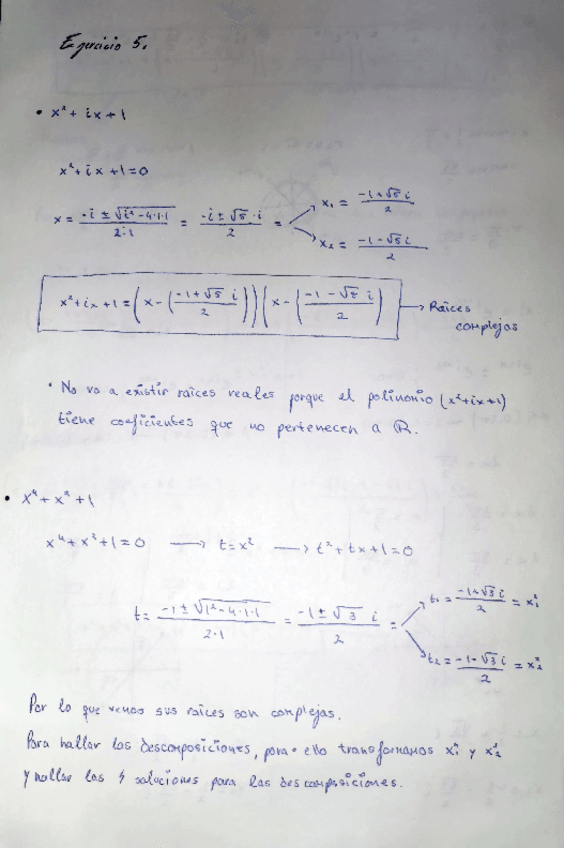 Ejercicio 5.
• x² + ix + 1
x² + ix + 1 = 0
x = (-i ± √(i² - 4·1·1)) / (2·1) = (-i ± √5 · i) / 2 = → x₁ = (-1 + √5 i) / 2
→ x₂ = (-1 - √5 i) / 2
x² + ix + 1 = (x - ((-1 + √5 i) / 2)) (x - ((-1 - √5 i) / 2)) → Raíces
complejas
· No va a existir raíces reales porque el polinomio (x² + ix + 1)
tiene coeficientes que no pertenecen a ℝ.
• x⁴ + x² + 1
x⁴ + x² + 1 = 0 → t = x² → t² + tx + 1 = 0
t = (-1 ± √(1² - 4·1·1)) / (2·1) = (-1 ± √3 i) / 2 = → t₁ = (-1 + √3 i) / 2 = x₁²
→ t₂ = (-1 - √3 i) / 2 = x₂²
Por lo que vemos sus raíces son complejas.
Para hallar las descomposiciones, para ello transformamos x₁² y x₂²
y hallar las 4 soluciones para las descomposiciones.